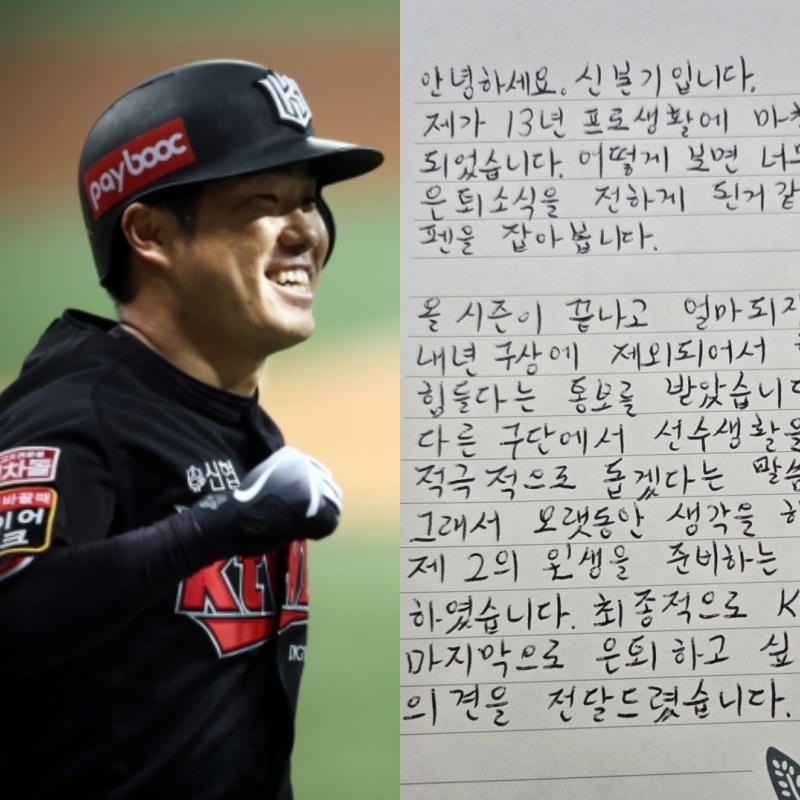 paybooc
신협
차돌
바꿀 때
이어
크
kt
안녕하세요. 신본기입니다.
제가 13년 프로생활에 마
되었습니다. 어떻게 보면 너무
은퇴소식을 전하게 된거 같
펜을 잡아봅니다.
올 시즌이 끝나고 얼마되지
내년 구상에 제외되어서
힘들다는 통보를 받았습니다
다른 구단에서 선수생활을
적극적으로 돕겠다는 말씀
그래서 오랫동안 생각을 하
제 2의 인생을 준비하는
하였습니다. 최종적으로 K
마지막으로 은퇴하고 싶
의견을 전달드렸습니다.